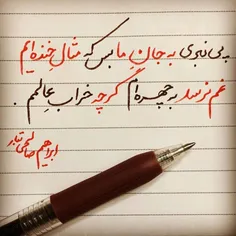 پی نبری به جان ما بس که مثال خنده ایم
غم نرسد به چهره ام گرچه خراب عالمم .
ابراهیم صالحی تبار